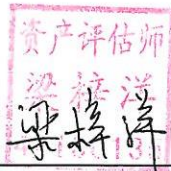 资产评估师
梁梓洋
梁梓洋